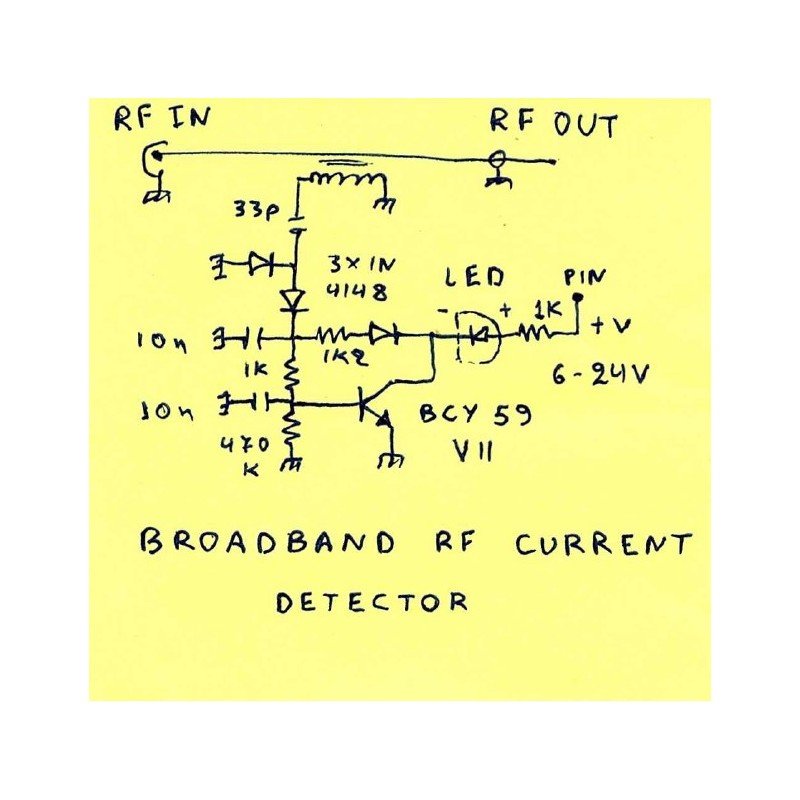 RF IN
RF OUT
33P
3X1N
4148
LED
PIN
- +
1K
+V
10n
1K2
1K
6-24V
10n
BCY 59
VII
470
K
BROADBAND RF CURRENT
DETECTOR